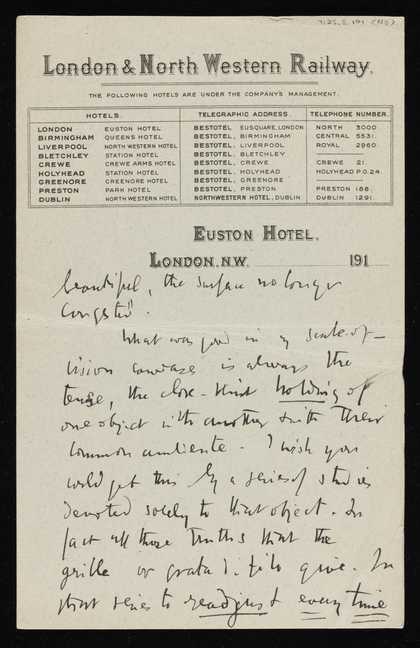 London & North Western Railway.
THE FOLLOWING HOTELS ARE UNDER THE COMPANY'S MANAGEMENT.
HOTELS. TELEGRAPHIC ADDRESS. TELEPHONE NUMBER.
LONDON EUSTON HOTEL BESTOTEL, EUSQUARE, LONDON NORTH 3000
BIRMINGHAM QUEENS HOTEL BESTOTEL, BIRMINGHAM CENTRAL 5531.
LIVERPOOL NORTH WESTERN HOTEL BESTOTEL, LIVERPOOL ROYAL 2960.
BLETCHLEY STATION HOTEL BESTOTEL, BLETCHLEY
CREWE CREWE ARMS HOTEL BESTOTEL, CREWE CREWE 21.
HOLYHEAD STATION HOTEL BESTOTEL, HOLYHEAD HOLYHEAD P.O. 24.
GREENORE GREENORE HOTEL BESTOTEL, GREENORE
PRESTON PARK HOTEL BESTOTEL, PRESTON PRESTON 188.
DUBLIN NORTH WESTERN HOTEL NORTHWESTERN HOTEL, DUBLIN DUBLIN 1291.
EUSTON HOTEL.
LONDON, N.W. 191
beautiful, the surface no longer
congested.
What was good in my scale-of-
vision is always the
tense, the close-knit holding of
one object with another with their
common ambiente. I wish you
could get this by a series of studies
devoted solely to that object. In
fact all those truths that the
grille or grata di filo give. In
that series to readjust every time